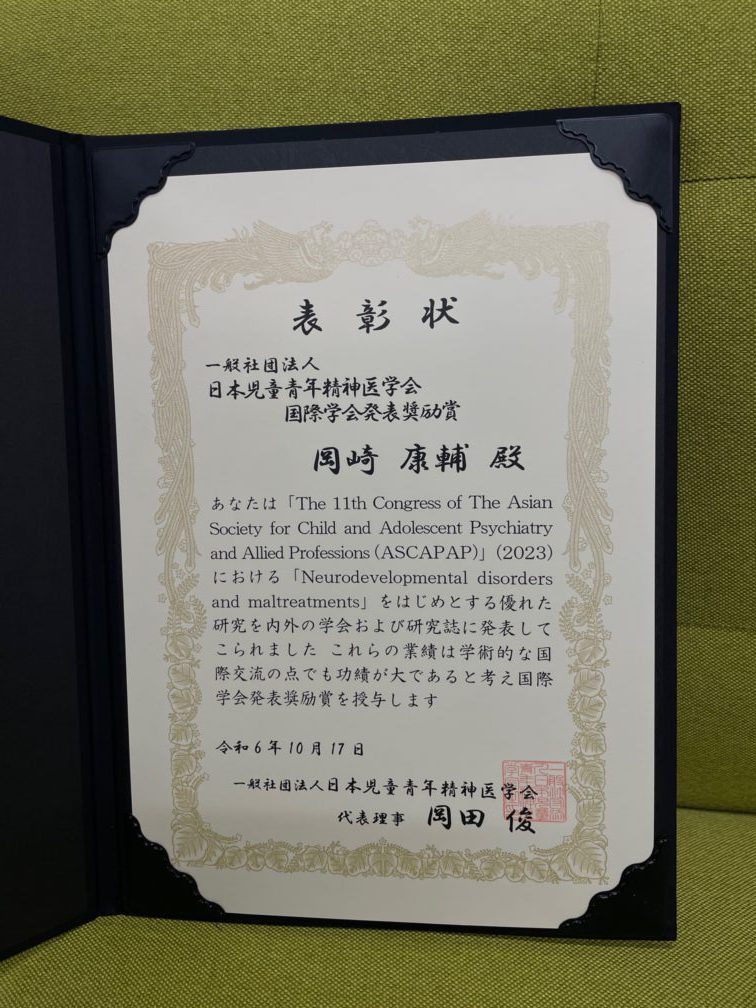 表彰状
一般社団法人
日本児童青年精神医学会
国際学会発表奨励賞
岡崎 康輔 殿
あなたは「The 11th Congress of The Asian
Society for Child and Adolescent Psychiatry
and Allied Professions (ASCAPAP)」(2023)
における「Neurodevelopmental disorders
and maltreatments」をはじめとする優れた
研究を内外の学会および研究誌に発表して
こられました これらの業績は学術的な国
際交流の点でも功績が大であると考え国際
学会発表奨励賞を授与します
令和6年10月17日
一般社団法人日本児童青年精神医学会
代表理事 岡田 俊